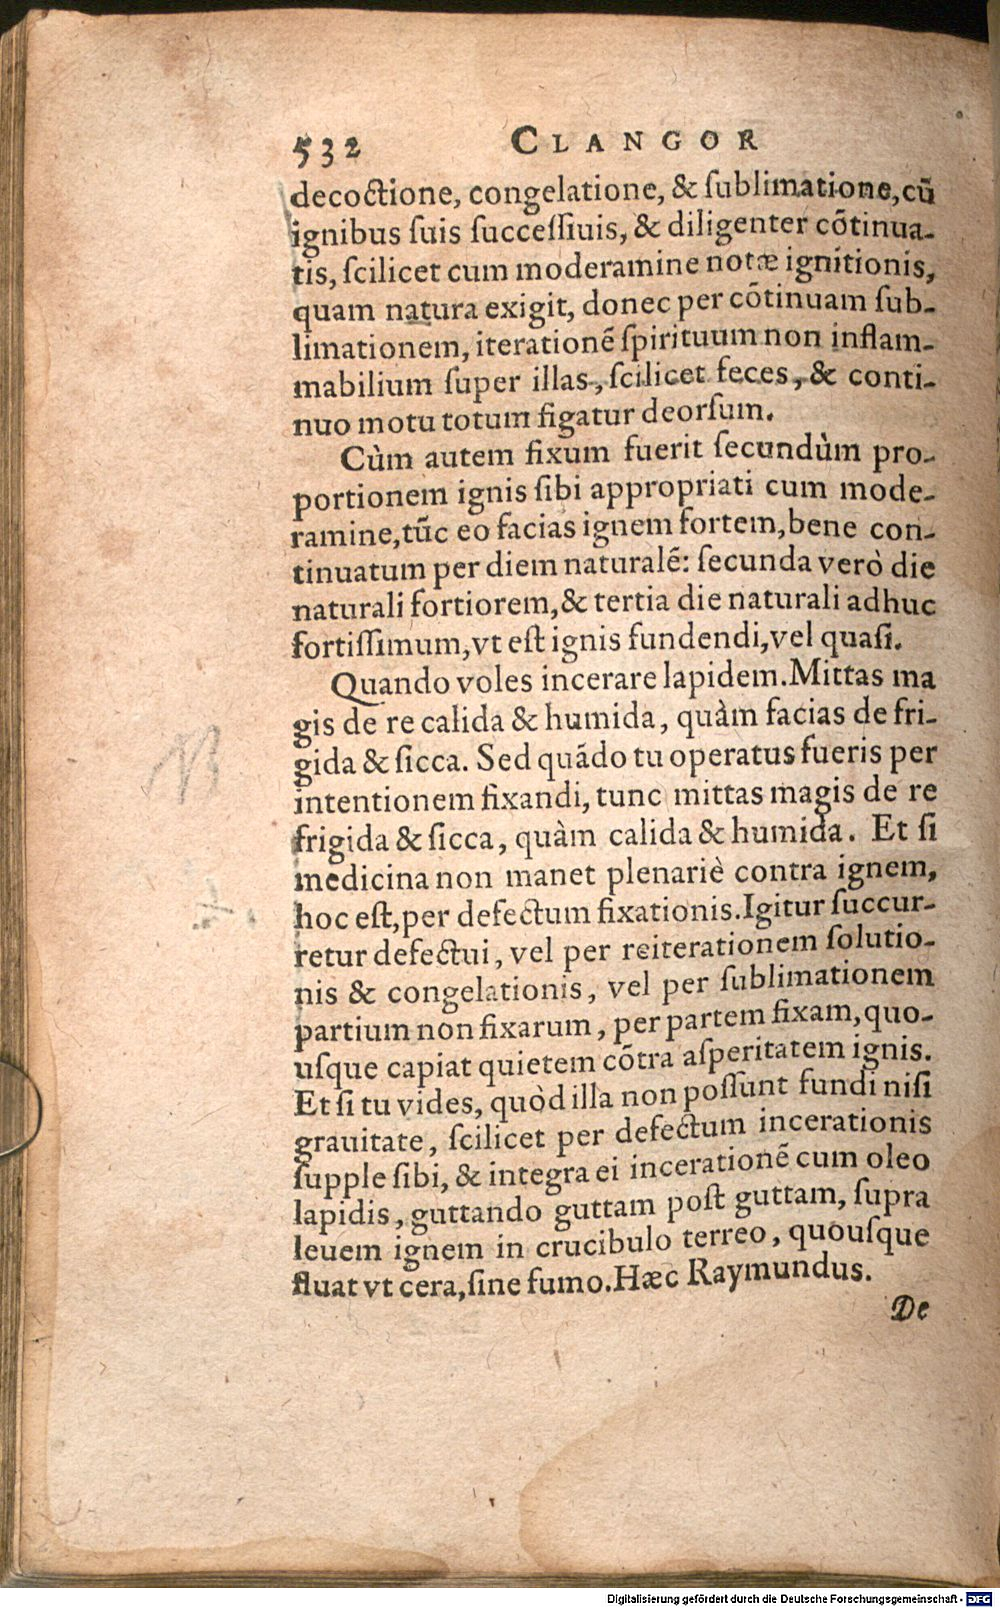 532 CLANGOR
decoctione, congelatione, & ſublimatione, cū
ignibus ſuis ſucceſſiuis, & diligenter cõtinua-
tis, ſcilicet cum moderamine notæ ignitionis,
quam natura exigit, donec per cõtinuam ſub-
limationem, iterationẽ ſpirituum non inflam-
mabilium ſuper illas, ſcilicet feces, & conti-
nuo motu totum figatur deorſum.
Cùm autem fixum fuerit ſecundùm pro-
portionem ignis ſibi appropriati cum mode-
ramine, tũc eo facias ignem fortem, bene con-
tinuatum per diem naturalẽ: ſecunda verò die
naturali fortiorem, & tertia die naturali adhuc
fortiſſimum, vt eſt ignis fundendi, vel quaſi.
Quando voles incerare lapidem. Mittas ma
gis de re calida & humida, quàm facias de fri-
gida & ſicca. Sed quãdo tu operatus fueris per
intentionem fixandi, tunc mittas magis de re
frigida & ſicca, quàm calida & humida. Et ſi
medicina non manet plenariè contra ignem,
hoc eſt, per defectum fixationis. Igitur ſuccur-
retur defectui, vel per reiterationem ſolutio-
nis & congelationis, vel per ſublimationem
partium non fixarum, per partem fixam, quo-
uſque capiat quietem cõtra aſperitatem ignis.
Et ſi tu vides, quòd illa non poſſunt fundi niſi
grauitate, ſcilicet per defectum incerationis
ſupple ſibi, & integra ei incerationẽ cum oleo
lapidis, guttando guttam poſt guttam, ſupra
leuem ignem in crucibulo terreo, quouſque
fluat vt cera, ſine fumo. Hæc Raymundus.
De
Digitalisierung gefördert durch die Deutsche Forschungsgemeinschaft - DFG